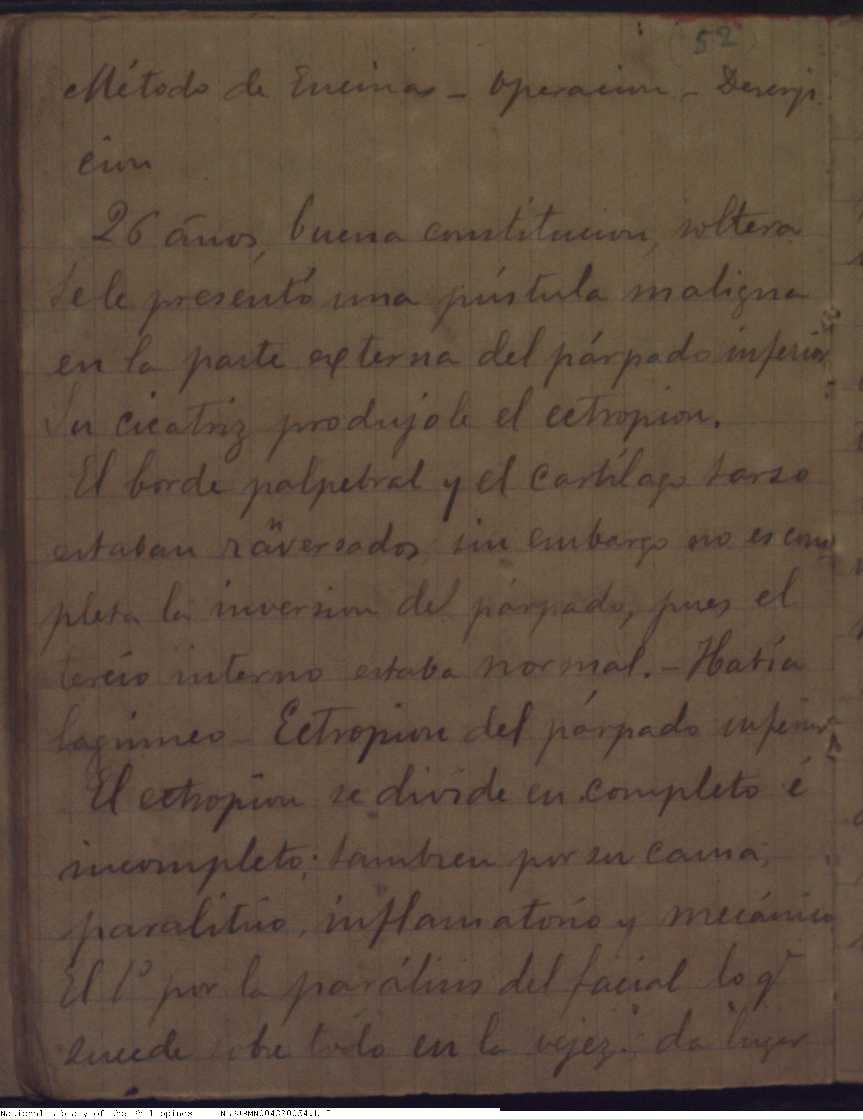 52
Método de Encinas - Operacion - Descrip
cion
26 años, buena constitucion, soltera
Se le presentó una pústula maligna
en la parte externa del párpado inferior
Su cicatriz prodújole el ectropion.
El borde palpebral y el cartílago tarso
estaban reversados, sin embargo no es com
pleta la inversion del párpado, pues el
tercio interno estaba normal. - Había
lagrimeo - Ectropion del párpado inferior
El ectropion se divide en completo é
incompleto; tambien por su causa,
paralítico, inflamatorio y mecánico
El 1º por la parálisis del facial lo q
sucede sobre todo en la vejez da lugar
National Library of the Philippines